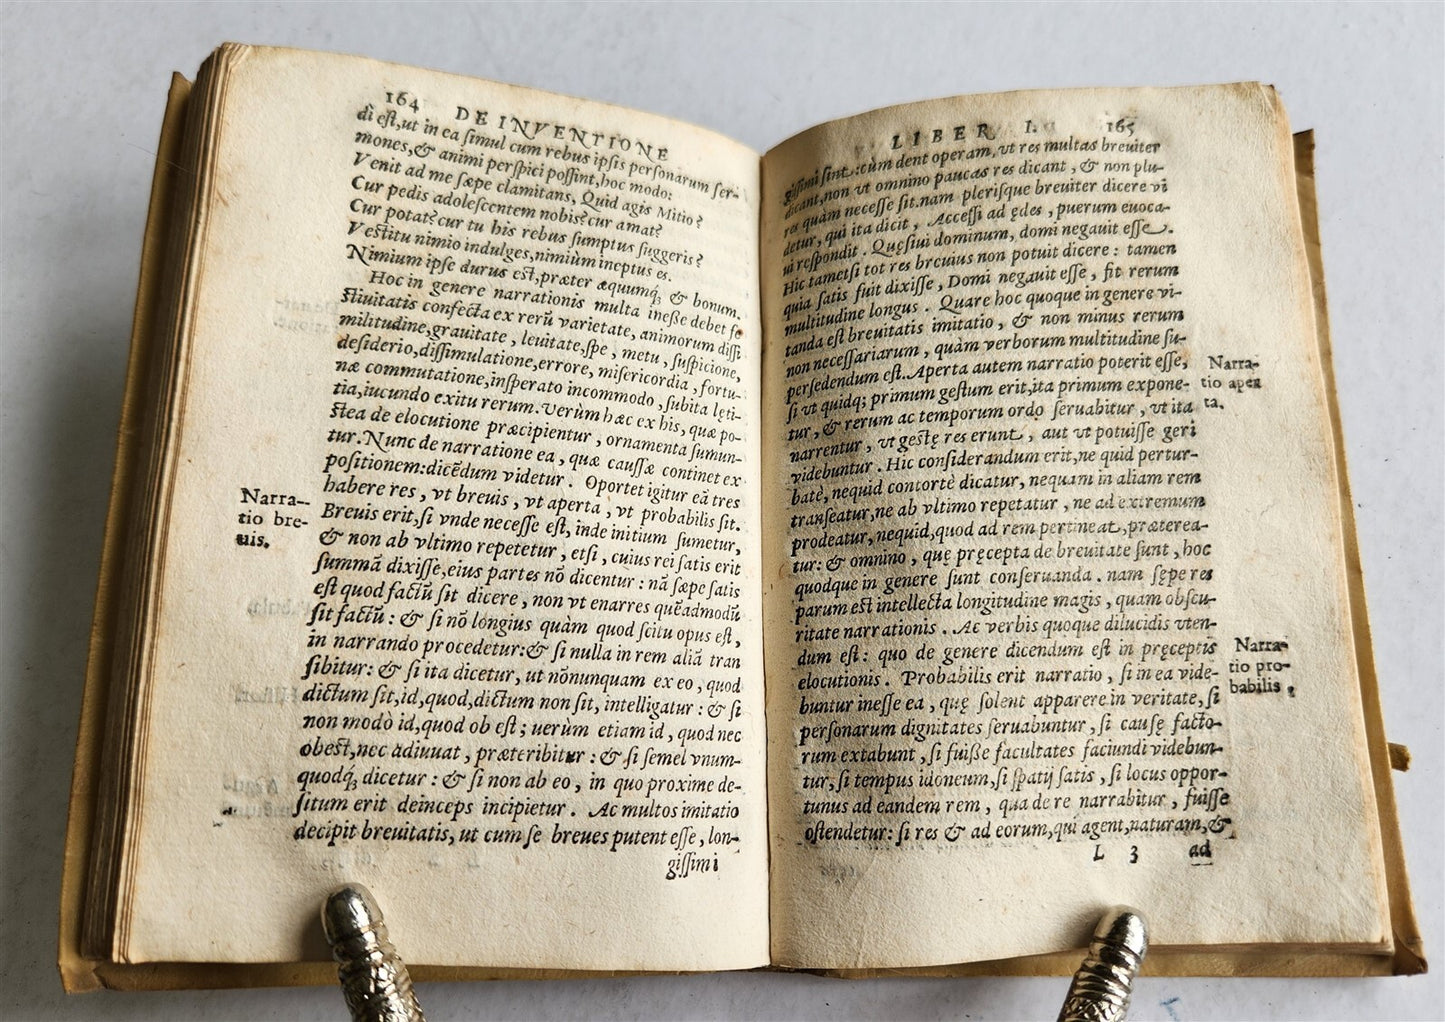 164 DE INVENTIONE
di est, ut in ea simul cum rebus ipsis personarum ser-
mones, & animi perspici possint, hoc modo:
Venit ad me sæpe clamitans, Quid agis Mitio?
Cur pedis adolescentem nobis? cur amat?
Cur potat? cur tu his rebus sumptus suggeris?
Vestitu nimio indulges, nimiùm ineptus es.
Nimium ipse durus est, præter æquumq́; & bonum.
Hoc in genere narrationis multa inesse debet fe
stiuitatis confecta ex rerū varietate, animorum dissi
militudine, grauitate, leuitate, spe, metu, suspicione,
desiderio, dissimulatione, errore, misericordia, fortu-
næ commutatione, insperato incommodo, subita lęti-
tia, iucundo exitu rerum. Verùm hæc ex his, quæ po-
stea de elocutione præcipientur, ornamenta sumun-
tur. Nunc de narratione ea, quæ caussæ continet ex
positionem: dicēdum videtur. Oportet igitur eā tres
habere res, vt breuis, vt aperta, vt probabilis sit.
Narra-
tio bre-
uis.
Breuis erit, si vnde necesse est, inde initium sumetur,
& non ab vltimo repetetur, etsi, cuius rei satis erit
summā dixisse, eius partes nō dicentur: nā sæpe satis
est quod factū sit dicere, non vt enarres quēadmodū
sit factū: & si nō longius quàm quod scitu opus est,
in narrando procedetur: & si nulla in rem aliā tran
sibitur: & si ita dicetur, ut nōnunquam ex eo, quod
dictum sit, id, quod, dictum non sit, intelligatur: & si
non modò id, quod ob est; uerùm etiam id, quod nec
obest, nec adiuuat, præteribitur: & si semel vnum-
quodq́; dicetur: & si non ab eo, in quo proxime de-
situm erit deinceps incipietur. Ac multos imitatio
decipit breuitatis, ut cum se breues putent esse, lon-
gissimi
LIBER I. 165
gissimi sint: cùm dent operam, vt res multas breuiter
dicant, non vt omnino paucas res dicant, & non plu-
res quàm necesse sit. nam plerisque breuiter dicere vi
detur, qui ita dicit, Accessi ad ędes, puerum euoca-
ui respondit. Quęsiui dominum, domi negauit esse.
Hic tametsi tot res breuius non potuit dicere: tamen
quia satis fuit dixisse, Domi negauit esse, fit rerum
multitudine longus. Quare hoc quoque in genere vi-
tanda est breuitatis imitatio, & non minus rerum
non necessariarum, quàm verborum multitudine su-
persedendum est. Aperta autem narratio poterit esse,
Narra-
tio aper
ta.
si vt quidq; primum gestum erit, ita primum expone-
tur, & rerum ac temporum ordo seruabitur, vt ita
narrentur, vt gestę res erunt, aut vt potuisse geri
videbuntur. Hic considerandum erit, ne quid pertur-
batè, nequid contortè dicatur, nequam in aliam rem
transeatur, ne ab vltimo repetatur, ne ad extremum
prodeatur, nequid, quod ad rem pertineat, præterea-
tur: & omnino, quę pręcepta de breuitate sunt, hoc
quodque in genere sunt conseruanda. nam sępe res
parum est intellecta longitudine magis, quam obscu-
ritate narrationis. Ac verbis quoque dilucidis vten-
dum est: quo de genere dicendum est in pręceptis
elocutionis. Probabilis erit narratio, si in ea vide-
Narra-
tio pro-
babilis,
buntur inesse ea, quę solent apparere in veritate, si
personarum dignitates seruabuntur, si causę facto-
rum extabunt, si fuisse facultates faciundi videbun-
tur, si tempus idoneum, si spatij satis, si locus oppor-
tunus ad eandem rem, qua de re narrabitur, fuisse
ostendetur: si res & ad eorum, qui agent, naturam, &
L 3 ad